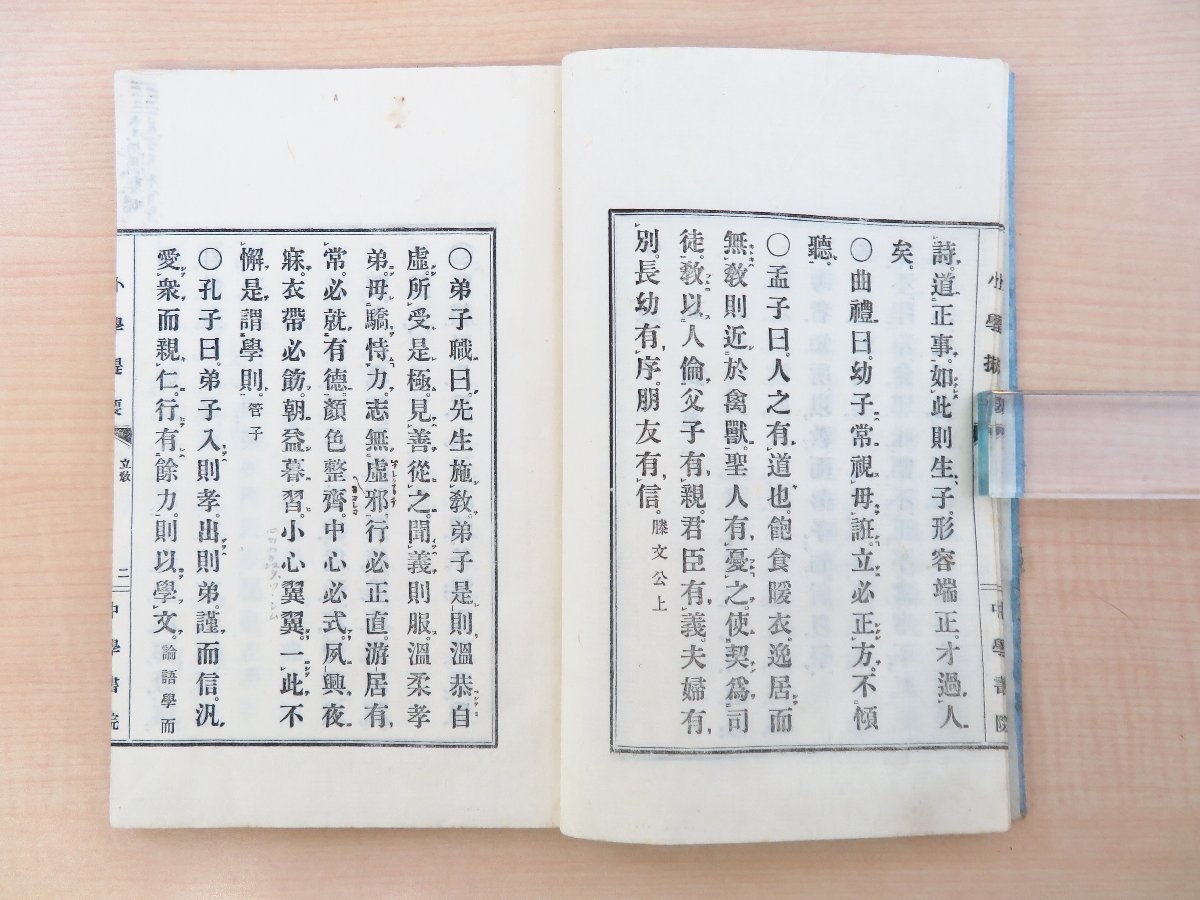 詩。道正事。如此則生子。形容端正。才過人
矣。
〇曲禮曰。幼子常視毋誑。立必正方。不傾
聽。
〇孟子曰。人之有道也。飽食暖衣。逸居而
無敎則近於禽獸。聖人有憂之。使契爲司
徒。敎以人倫。父子有親。君臣有義。夫婦有
別。長幼有序。朋友有信。滕文公上
〇弟子職曰。先生施敎。弟子是則。溫恭自
虛。所受是極。見善從之。聞義則服。溫柔孝
弟。毋驕恃力。志無虛邪。行必正直。游居有
常。必就有德。顏色整齊。中心必式。夙興夜
寐。衣帶必飭。朝益暮習。小心翼翼。一此不
懈。是謂學則。管子
〇孔子曰。弟子入則孝。出則弟。謹而信。汎
愛衆而親仁。行有餘力。則以學文。論語學而
立敎
二
中學書院